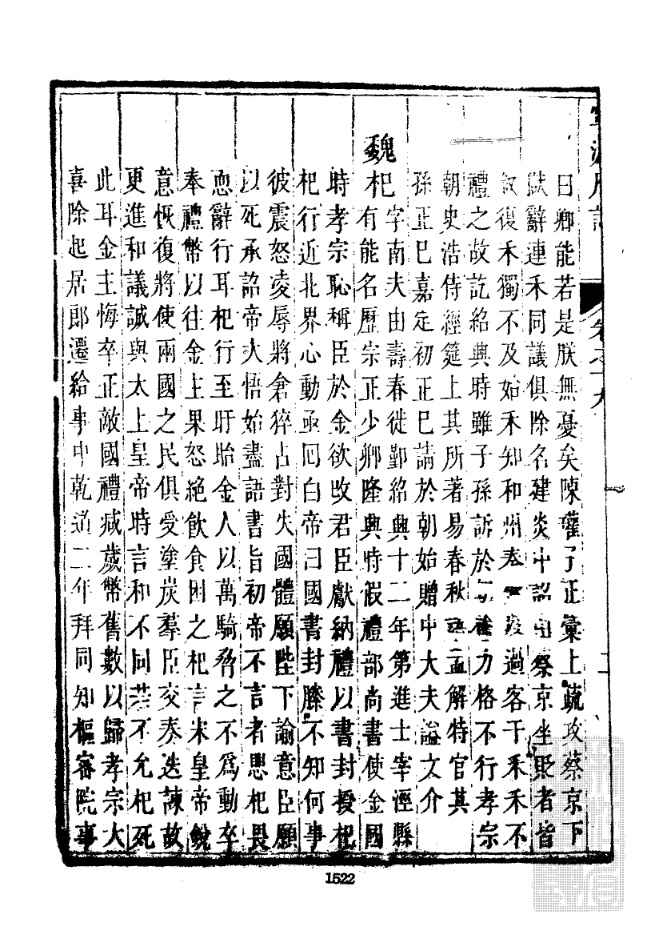 曰卿能若是朕無憂矣陳瓘子正彙上疏攻蔡京下
獄辭連禾同議俱除名建炎中詔由蔡京坐貶者皆
敘復禾獨不及始禾知和州 過客干禾禾不
禮之故訖紹興時雖子孫訴於 力格不行孝宗
朝史浩侍經筵上其所著易春秋 孟解特官其
孫正巳嘉定初正巳請於朝始贈中大夫諡文介
魏杞字南夫由壽春徙鄞紹興十二年第進士宰涇縣
有能名歷宗正少卿隆興特假禮部尚書使金國
時孝宗恥稱臣於金欲改君臣獻納禮以書封授杞
杞行近北界心動亟囘白帝曰國書封縢不知何事
彼震怒凌辱將倉猝占對失國體願陛下諭意臣願
以死承詔帝大悟始盡語書旨初帝不言者思杞畏
恧辭行耳杞行至盱眙金人以萬騎脅之不爲動卒
奉禮幣以往金主果怒絕飲食困之杞言宋皇帝銳
意恢復將使兩國之民俱受塗炭羣臣交奏迭諫故
更進和議誠與太上皇帝時言和不同若不允杞死
此耳金主悔卒正敵國禮减歲幣舊數以歸孝宗大
喜除起居郎遷給事中乾道二年拜同知樞密院事
1522